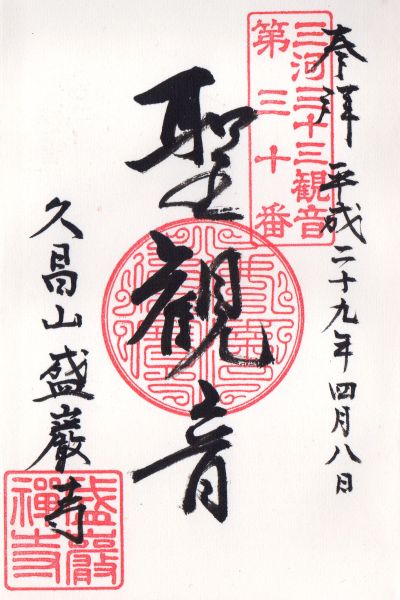 奉拝 平成二十九年四月八日
三河三十三観音
第三十番
聖観音
久昌山 盛巌寺
盛巖禪寺